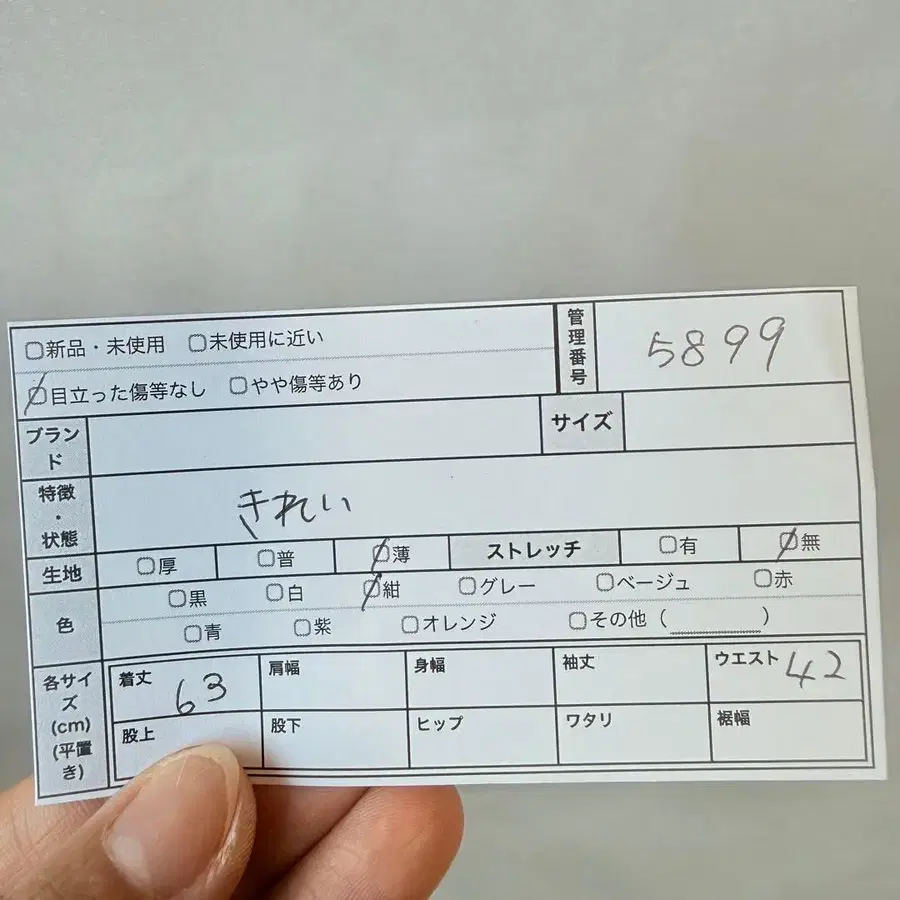 ▢新品・未使用 ▢未使用に近い
▢目立った傷等なし ▢やや傷等あり
管理番号 5899
ブランド サイズ
特徴・状態 きれい
生地 ▢厚 ▢普 ▢薄 ストレッチ ▢有 ▢無
色 ▢黒 ▢白 ▢紺 ▢グレー ▢ベージュ ▢赤
▢青 ▢紫 ▢オレンジ ▢その他（ ）
各サイズ(cm)(平置き) 着丈 63 肩幅 身幅 袖丈 ウエスト 42
股上 股下 ヒップ ワタリ 裾幅